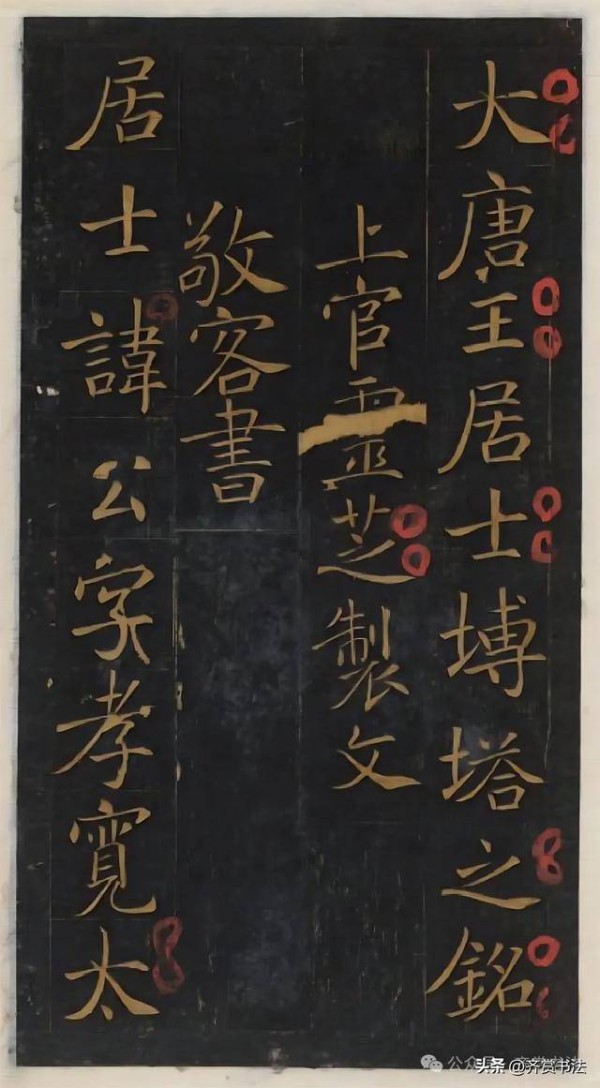 大唐王居士塼塔之銘
上官靈芝製文
敬客書
居士諱公字孝寬太
头条 @齐赏书法